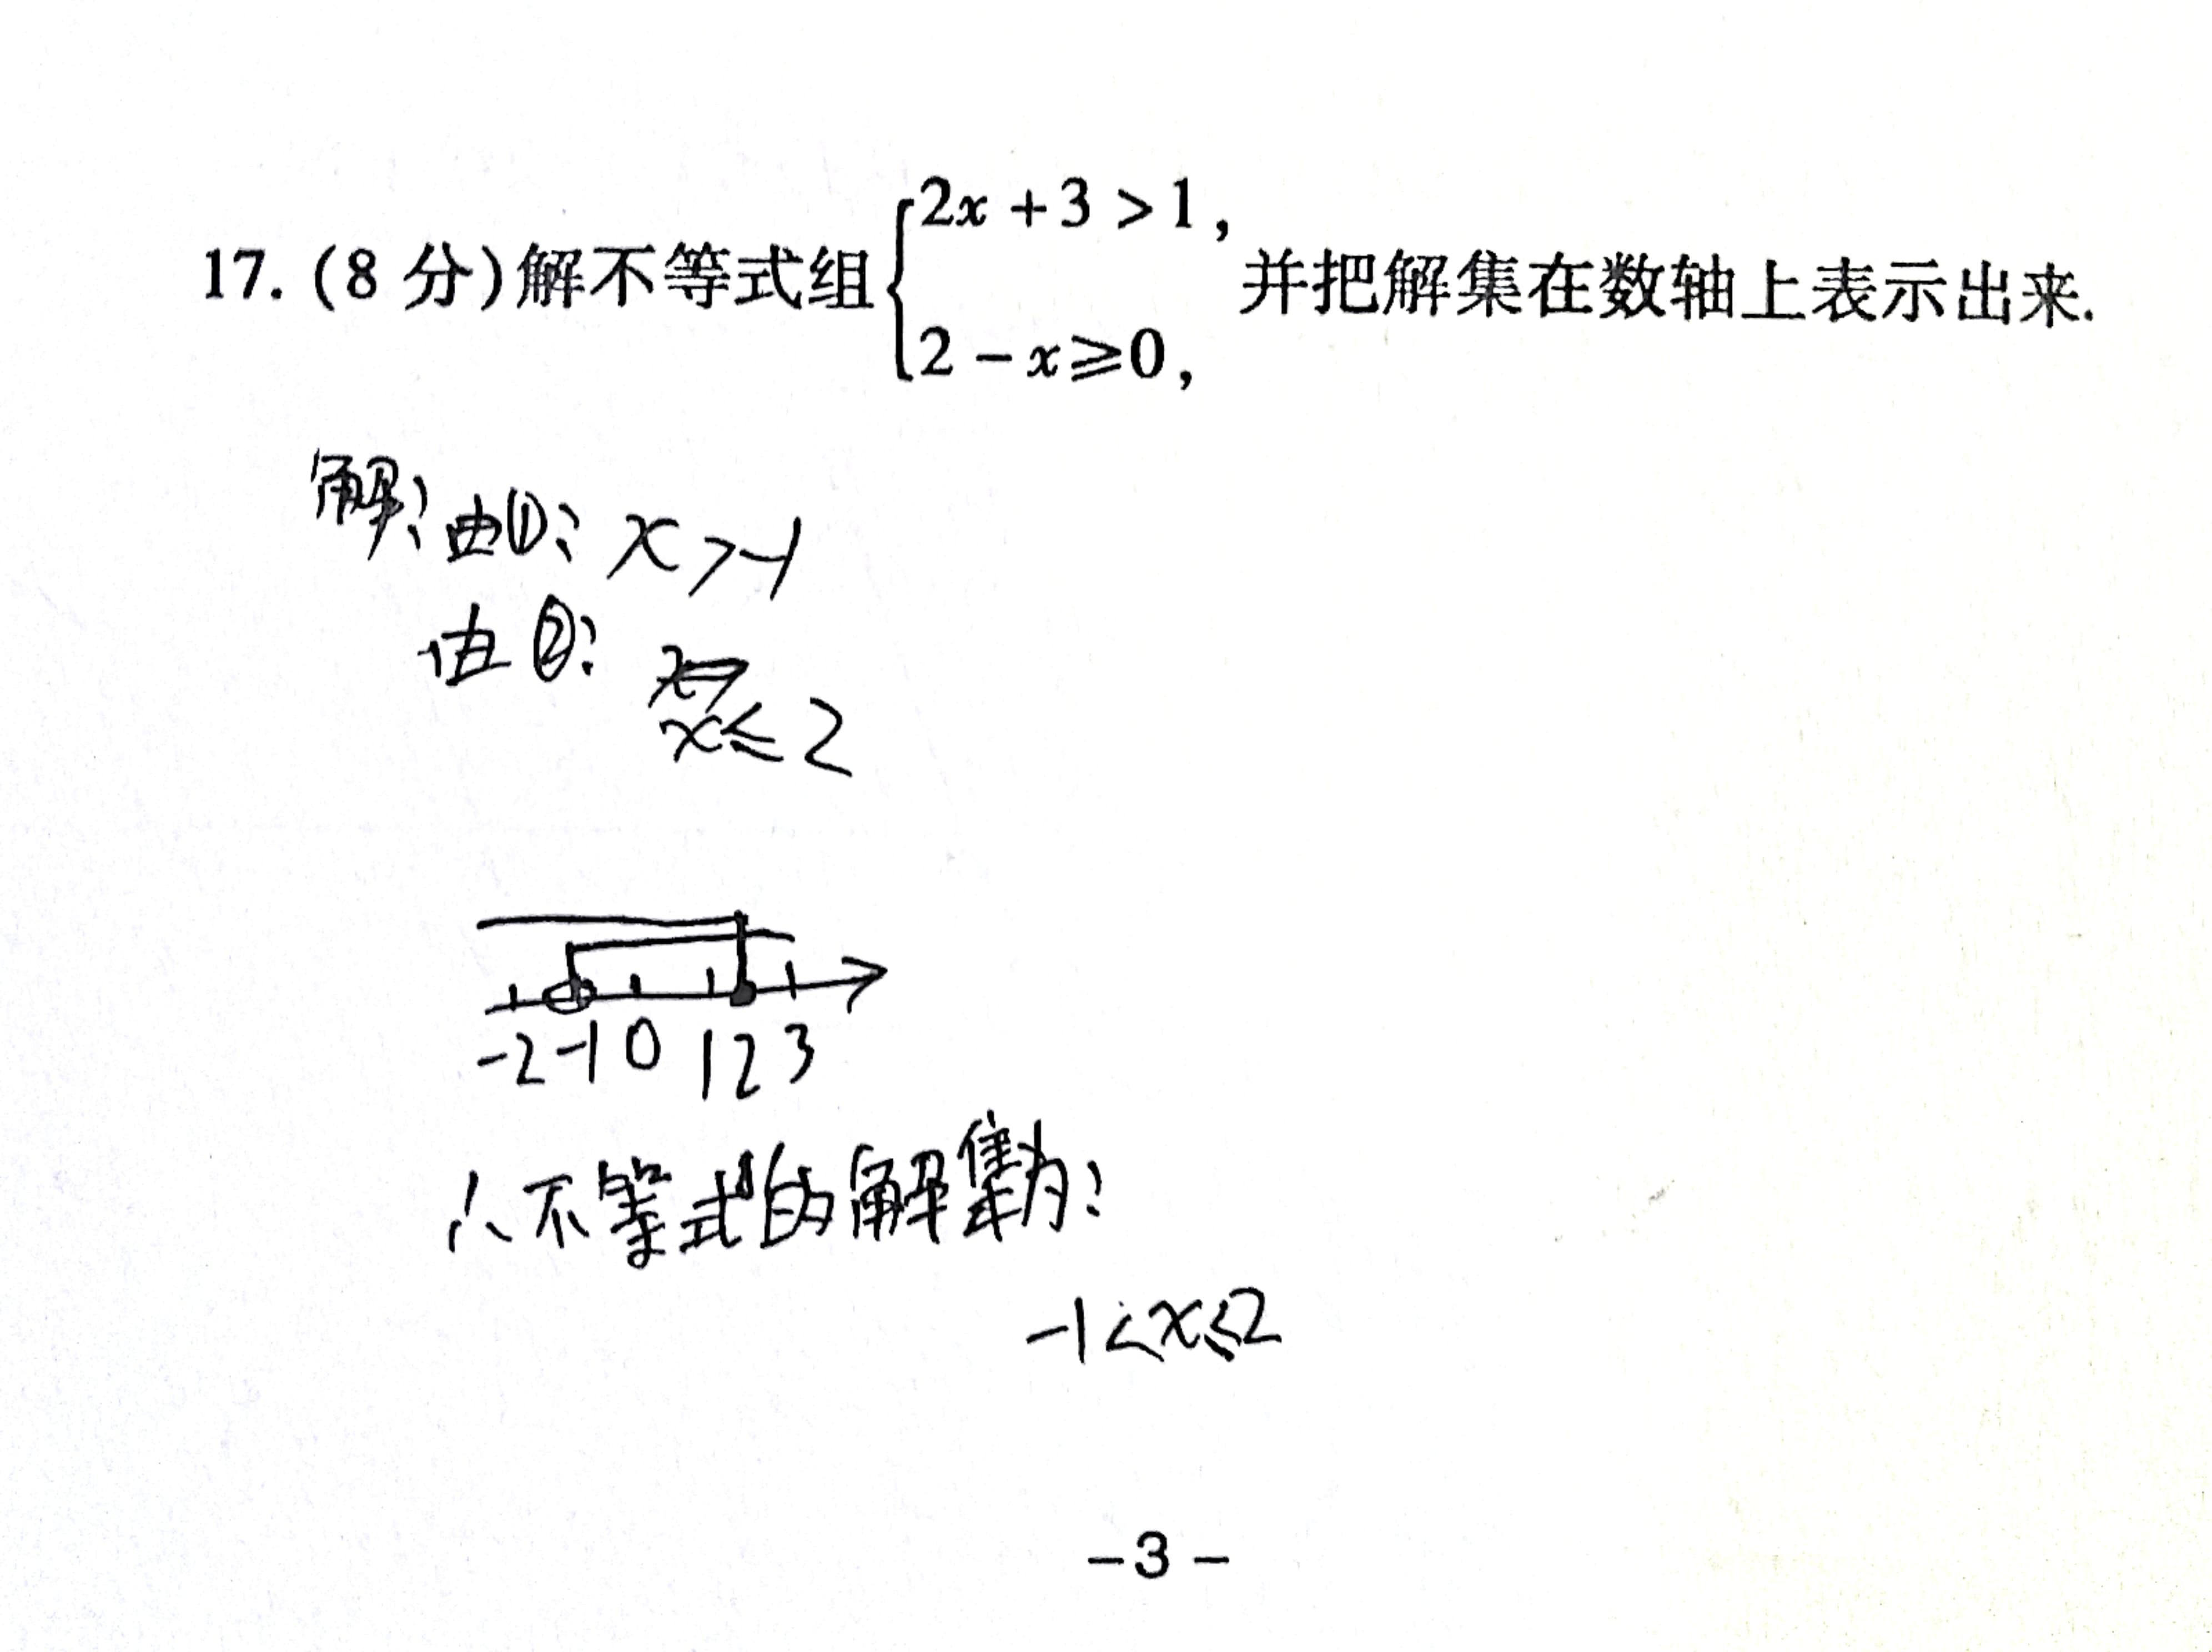 17. (8 分)解不等式组{2x + 3 > 1, 2 - x ≥ 0, 并把解集在数轴上表示出来.
解: 由①: x > -1
由②:
x ≤ 2
-2 -1 0 1 2 3
∴不等式的解集为:
-1 < x ≤ 2
- 3 -